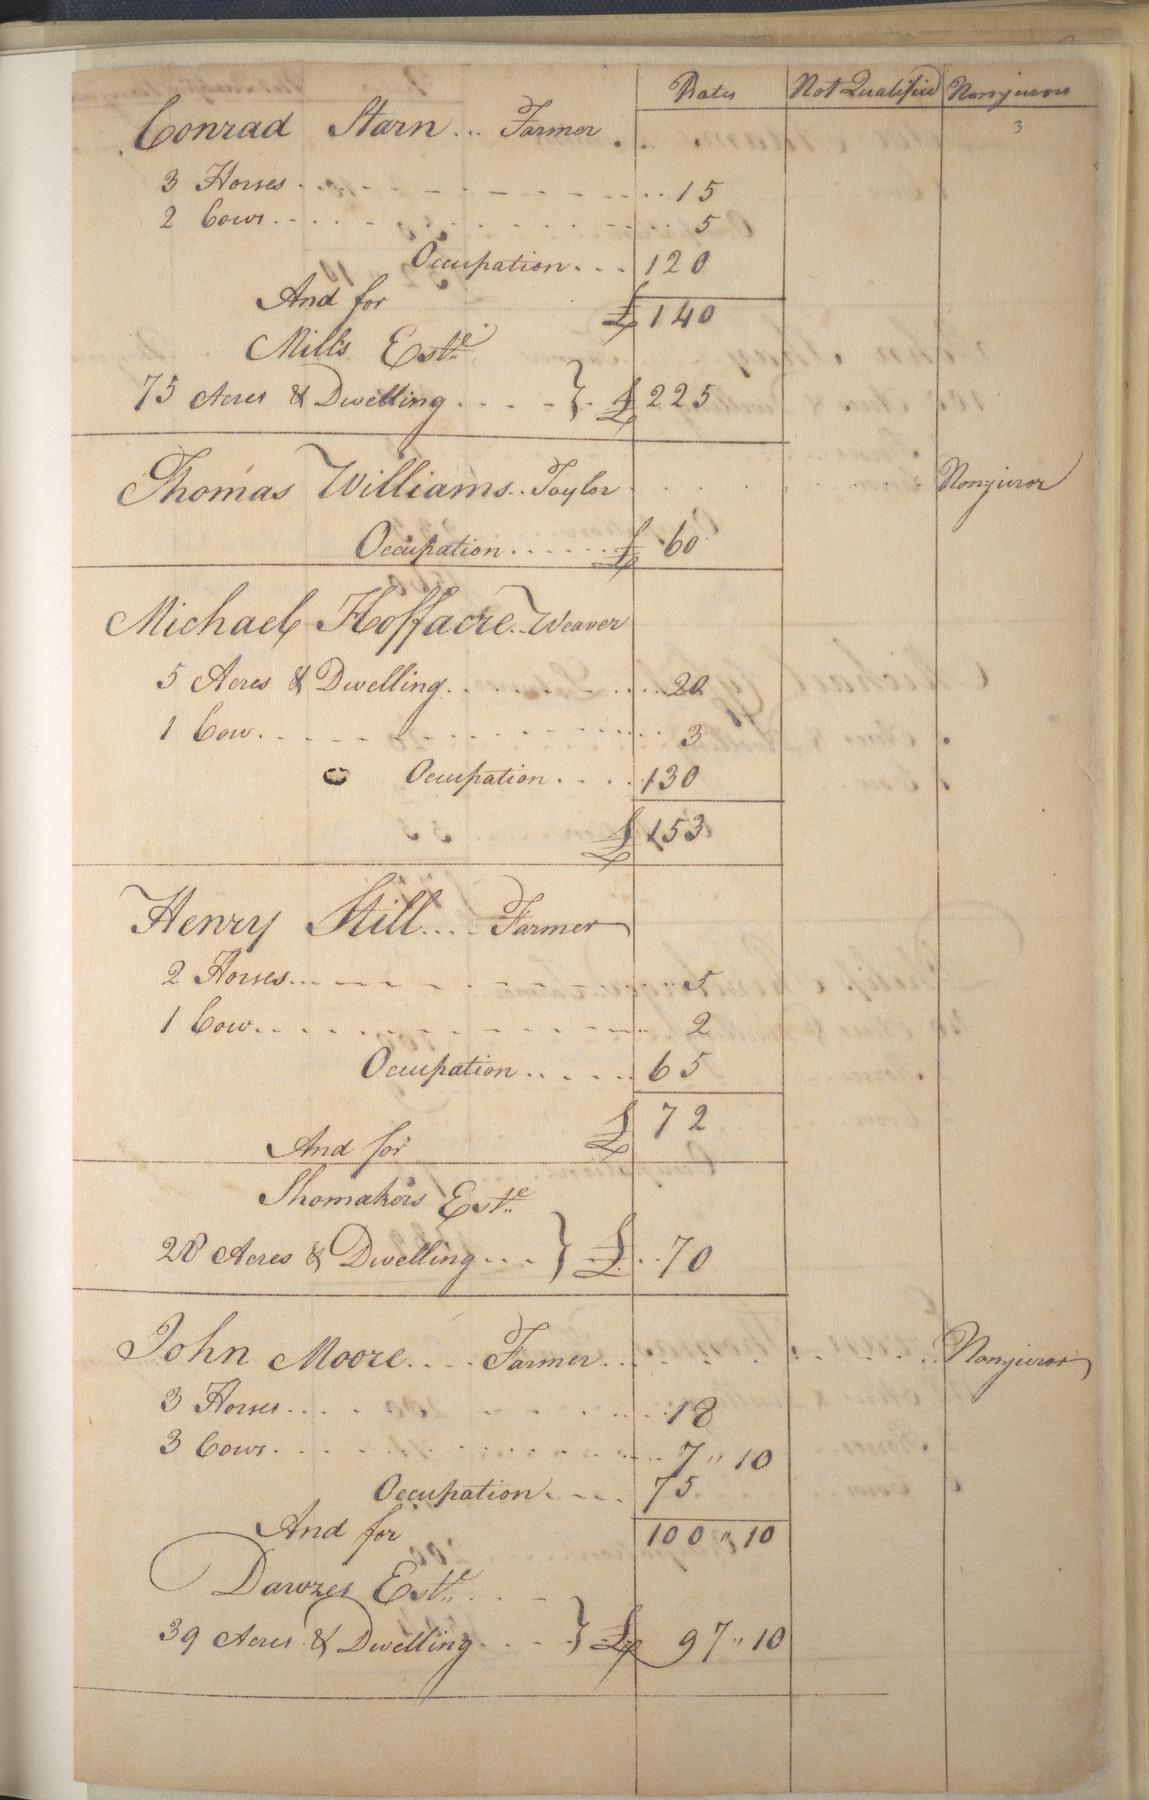 Rates Not Qualified Nonjurors
3
Conrad Starn... Farmer.
3 Horses 15
2 Cows 5
Occupation... 120
And for £140
Mills Este
75 Acres & Dwelling } £225
Thomas Williams.. Taylor Nonjuror
Occupation...... £ 60
Michael Hoffacre.. Weaver
5 Acres & Dwelling 20
1 Cow 3
Occupation 130
£153
Henry Still.... Farmer
2 Horses 5
1 Cow 2
Occupation 65
£ 72
And for
Shomakers Este
28 Acres & Dwelling... } £ 70
John Moore.... Farmer... Nonjuror
3 Horses 18
3 Cows 7 " 10
Occupation 75
And for 100 " 10
Dawzes Este
39 Acres & Dwelling } £ 97 " 10